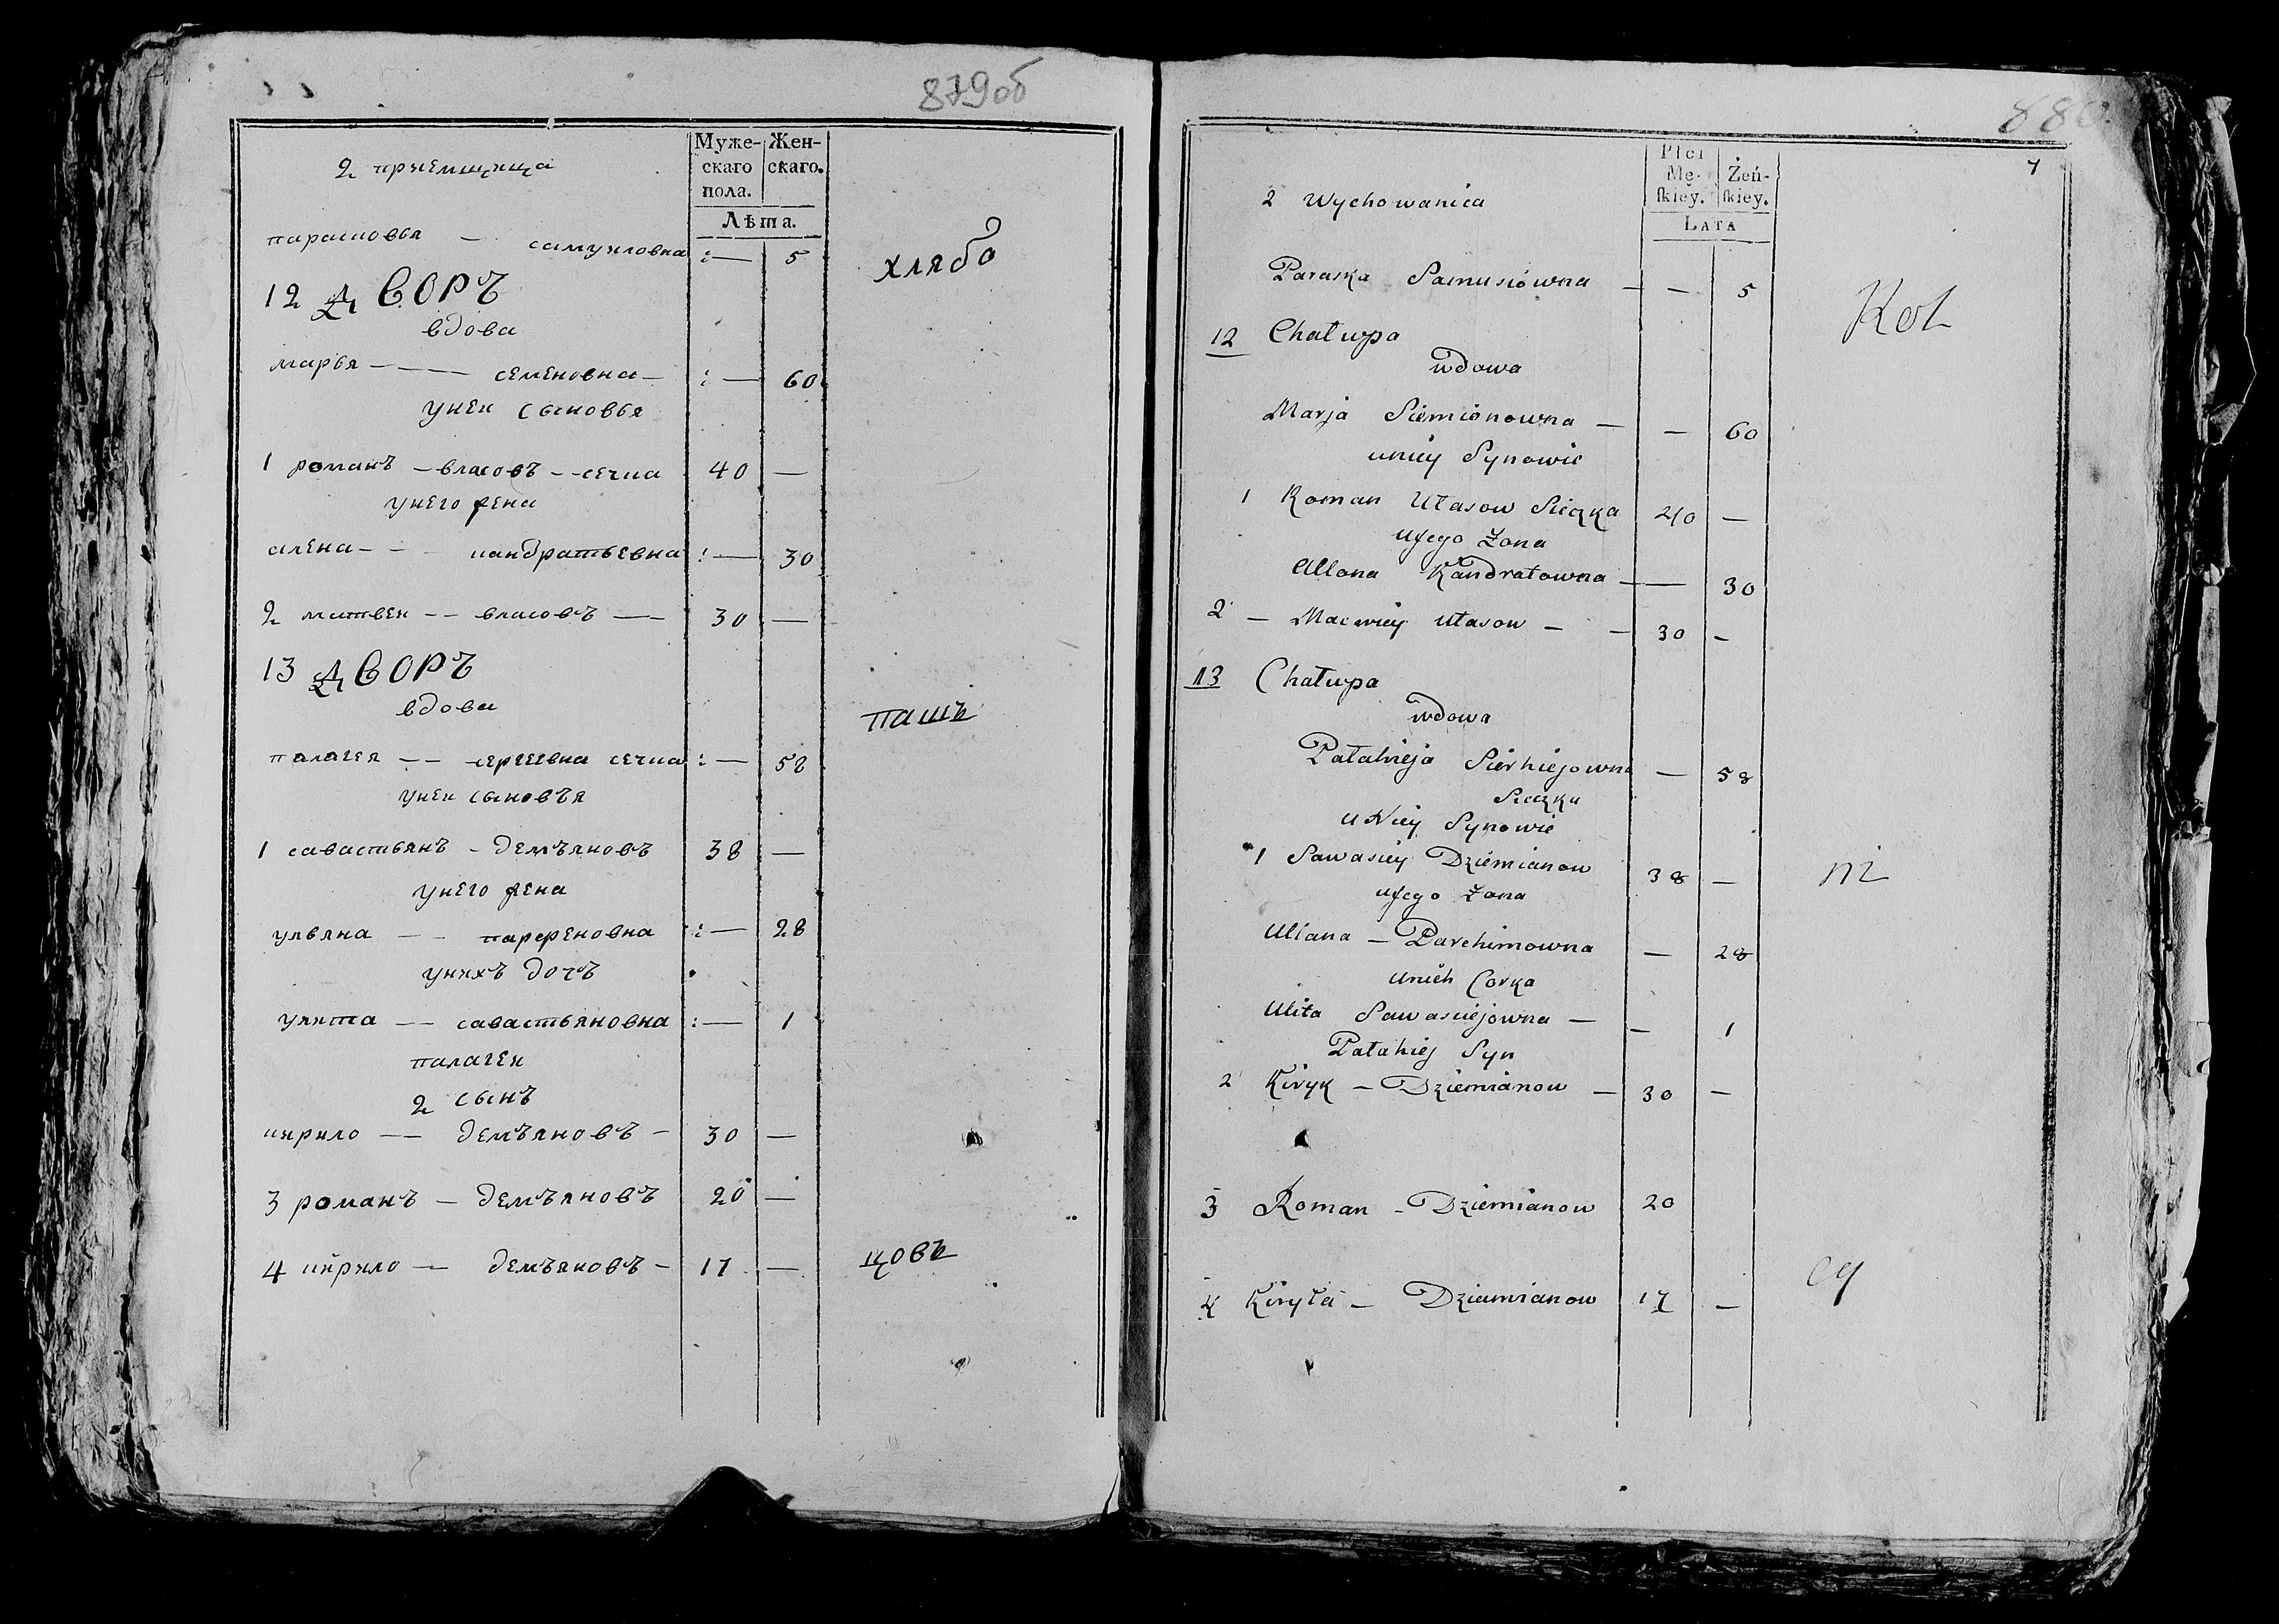 879об
Муже-
скаго
пола.
Жен-
скаго.
Лѣта.
2 приемщица
парасковья — самуиловна :— 5
хлябо
12 дворъ
вдова
марья — — семеновна — :— 60
унеи сыновья
1 романъ — власовъ — сечка 40 —
унего жена
алена — — кандратьевна :— 30
2 матвеи — — власовъ — 30 —
13 дворъ
вдова
пашъ
палагея — — сергеевна сечка :— 58
унеи сыновъя
1 савастьянъ — демъяновъ 38 —
унего жена
ульяна — — парфеновна :— 28
унихъ дочъ
улита — — савастьяновна :— 1
палагеи
2 сынъ
кирило — — демъяновъ — 30 —
3 романъ — демъяновъ 20 —
4 кирило — демъяновъ — 17 —
цовъ
880
7
Płci
Mę-
skiey.
Żeń-
skiey.
LATA
2 Wychowanica
Paraska Samusiowna — — 5
Kol
12 Chałupa
wdowa
Marja Siemionowna — — 60
uniey Synowie
1 Roman Ułasow Sieczka 40 —
ujego Żona
Allona Kandratowna — — 30
2 — Maciwiey Ułasow — — 30 —
13 Chałupa
wdowa
Pałahieja Sierhiejowna — 58
Sieczka
uNiey Synowie
1 Sawasciey Dziemianow 38 —
ni
ujego Żona
Uliana — Parchimowna — 28
unich Corka
Ulita Sawasciejowna — — 1
Pałahiej Syn
2 Kiryk — Dziemianow — 30 —
3 Roman - Dziemianow 20
4 Kiryła — Dziemianow 17 —
cy